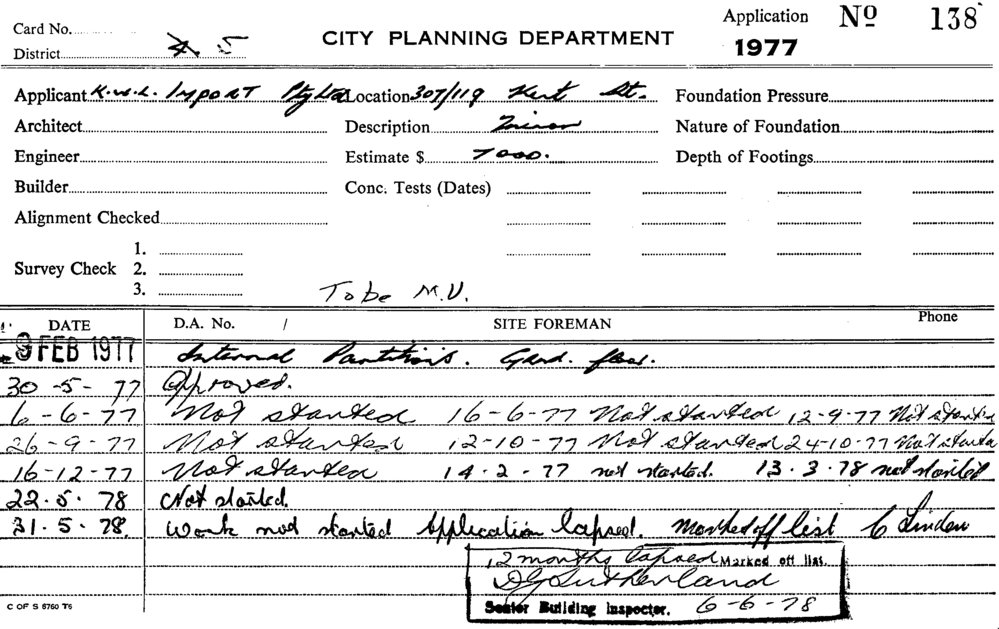 Card No. Application Nº 138
District 4. 5 CITY PLANNING DEPARTMENT 1977
Applicant K.W.L. IMPORT Pty Ltd Location 307/119 Kent St. Foundation Pressure
Architect Description Minor Nature of Foundation
Engineer Estimate $ 7000. Depth of Footings
Builder Conc. Tests (Dates)
Alignment Checked
1.
Survey Check 2.
3. To be M.V.
DATE D.A. No. / SITE FOREMAN Phone
9 FEB 1977 Internal Partitions. Grnd. floor.
30-5-77 Approved.
6-6-77 Not started 16-6-77 Not started 12-9-77 Not started
26-9-77 Not started 12-10-77 Not started 24-10-77 Not started
16-12-77 Not started 14.2.77 not started. 13.3.78 not started
22.5.78 Not started.
31.5.78. Work not started Application lapsed. Marked off list C Linden
12 months lapsed Marked off list.
D G Sutherland
C OF S 8760 T6 Senior Building Inspector. 6-6-78